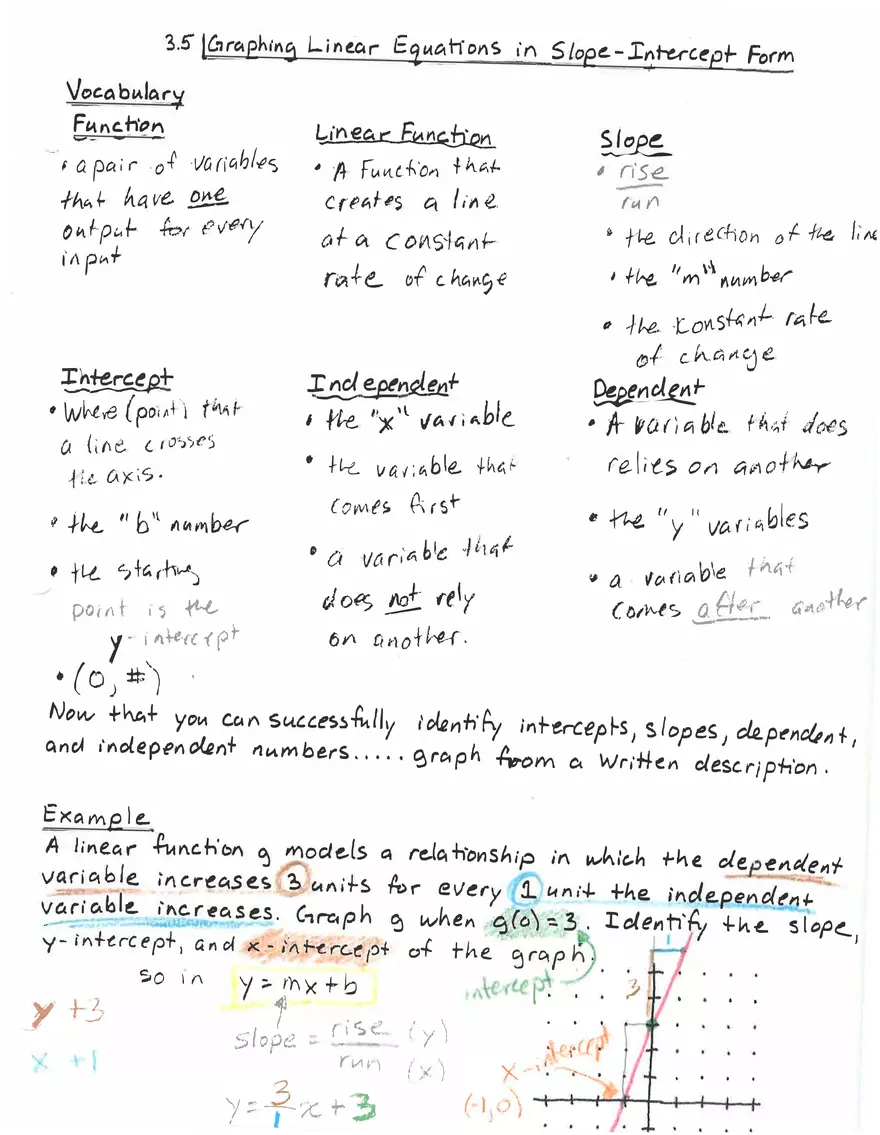 3.5 Graphing Linear Equations in Slope-Intercept Form
Vocabulary
Function
• a pair of variables
that have one
output for every
input
Linear Function
• A Function that
creates a line
at a constant
rate of change
Slope
• rise
run
• the direction of the line
• the "m" number
• the constant rate
of change
Intercept
• Where (point) that
a line crosses
the axis.
• the "b" number
• the starting
point is the
y-intercept
• (0, #)
Independent
• the "x" variable
• the variable that
comes first
• a variable that
does not rely
on another.
Dependent
• A variable that does
relies on another
• the "y" variables
• a variable that
comes after another
Now that you can successfully identify intercepts, slopes, dependent,
and independent numbers..... graph from a written description.
Example
A linear function g models a relationship in which the dependent
variable increases 3 units for every 1 unit the independent
variable increases. Graph g when g(0)=3. Identify the slope,
y-intercept, and x-intercept of the graph.
so in y=mx+b
intercept
y +3
x +1
slope = rise (y)
run (x)
y=3/1x+3
1
3
x-intercept
(-1,0)